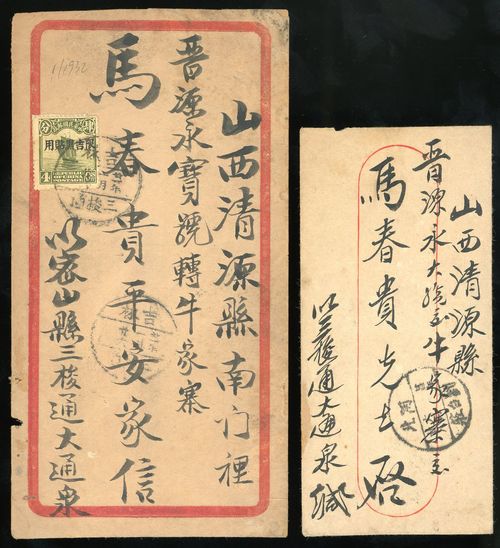 山西清源縣南门裡
晋源永寳號轉牛家寨
馬春貴平安家信
以密山縣三梭通大通泉
1/1932
限吉黑貼用
4
REPUBLIC OF CHINA POSTAGE
山西清源縣
晋源永大號交牛家寨交
馬春貴先生啓
以三梭通大通泉緘